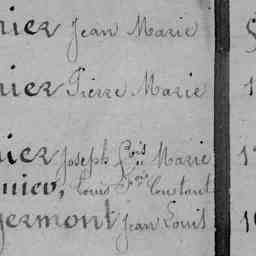 nier Jean Marie
nier Pierre Marie
nier Joseph Fçois Marie
nier, Louis Fçois Constant
germont Jean Louis